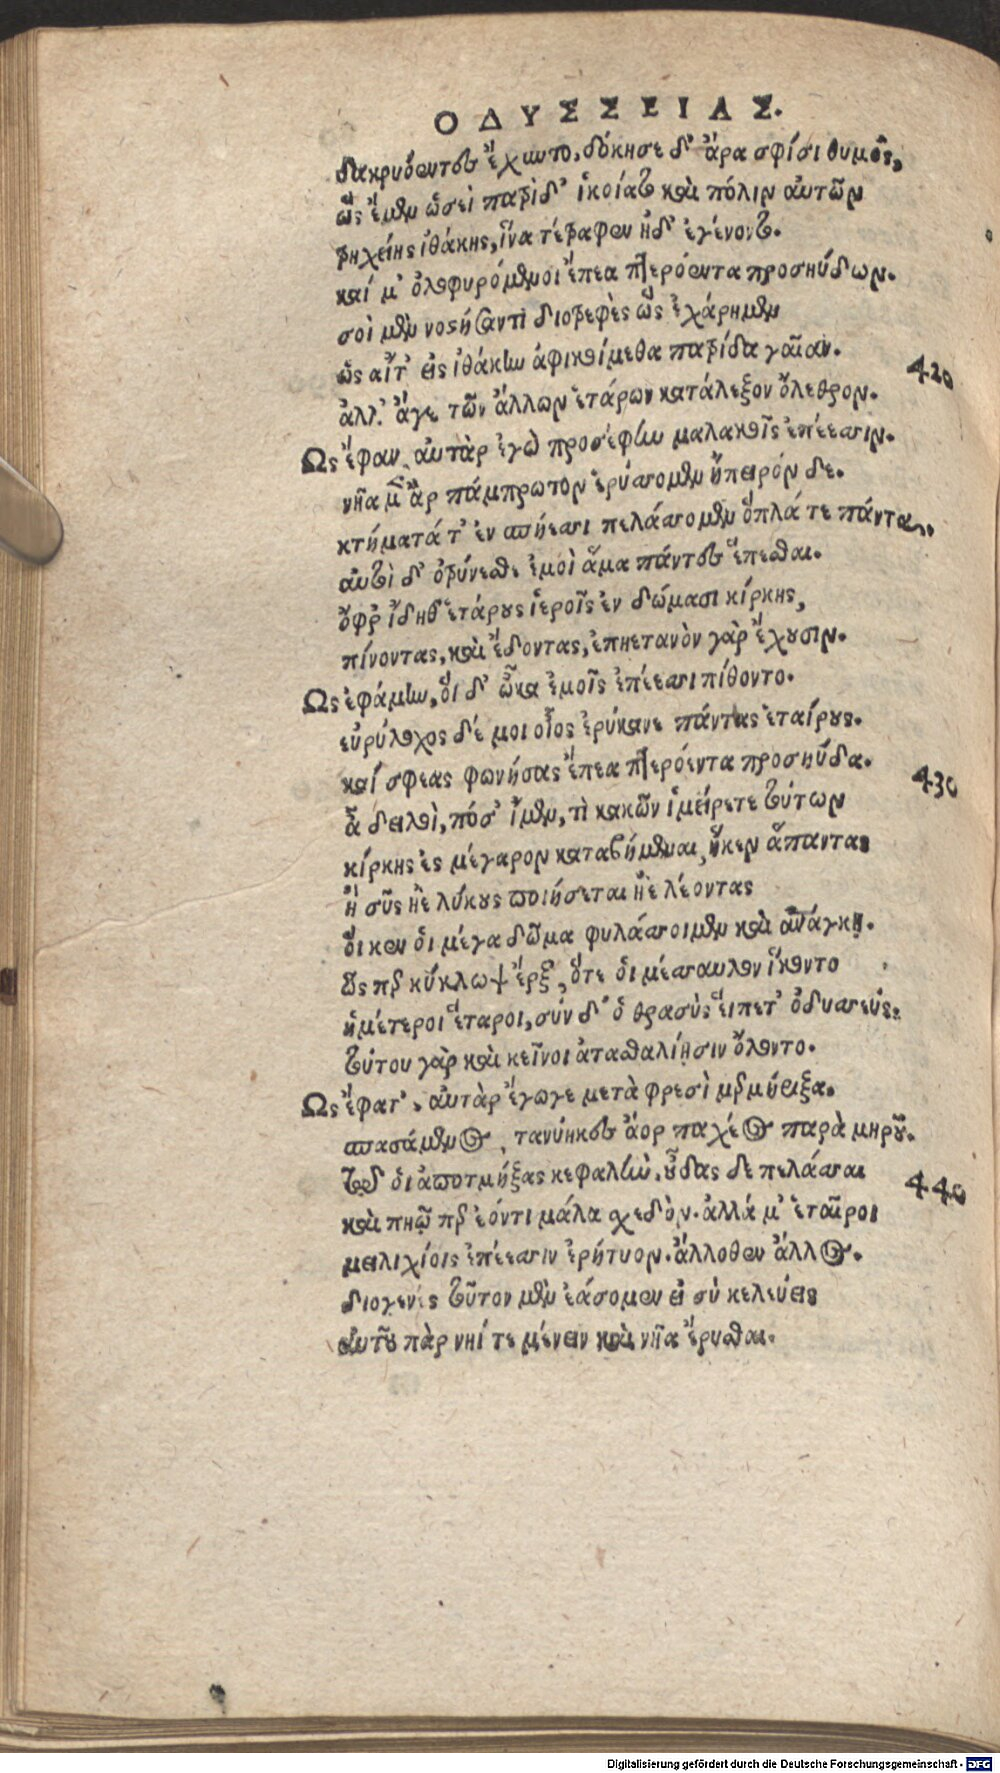 ΟΔΥΣΣΕΙΑΣ.
δακρυόεντες ἔχωντο, δόκησε δ' ἄρα σφίσι θυμὸς,
ὣς ἔμεν ὡσεὶ πατρίδ' ἱκοίατο καὶ πόλιν αὐτῶν
τρηχείης ἰθάκης, ἵνα τέτραφεν ἠδ' ἐγένοντο.
καί μ' ὀλοφυρόμενοι ἔπεα πτερόεντα προσηύδων.
σοὶ μὲν νοστήσαντι διοτρεφὲς ὣς ἐχάρημεν
ὡς αἴτ' εἰς ἰθάκην ἀφικοίμεθα πατρίδα γαῖαν.
420
ἀλλ' ἄγε τῶν ἄλλων ἑτάρων κατάλεξον ὄλεθρον.
Ως ἔφαν, αὐτὰρ ἐγὼ προσέφην μαλακοῖς ἐπέεσσιν.
νῆα μὲν ἂρ πάμπρωτον ἐρύσσομεν ἤπειρόν δε.
κτήματά τ' ἐν σπήεσσι πελάσσομεν ὅπλά τε πάντα.
αὐτοὶ δ' ὀτρύνεσθε ἐμοὶ ἅμα πάντες ἕπεσθαι.
ὄφρ' ἴδηθ' ἑτάρους ἱεροῖς ἐν δώμασι κίρκης,
πίνοντας, καὶ ἔδοντας, ἐπηετανὸν γὰρ ἔχουσιν.
Ως ἐφάμην, οἱ δ' ὦκα ἐμοῖς ἐπέεσσι πίθοντο.
εὐρύλοχος δέ μοι οἶος ἐρύκανε πάντας ἑταίρους.
καί σφεας φωνήσας ἔπεα πτερόεντα προσηύδα.
430
ἆ δειλοὶ, πόσ' ἴμεν, τὶ κακῶν ἱμείρετε τούτων
κίρκης ἐς μέγαρον καταβήμεναι, ἥκεν ἅπαντας
ἢ σῦς ἠὲ λύκους ποιήσεται ἠὲ λέοντας
οἵ κεν οἱ μέγα δῶμα φυλάσσοιμεν καὶ ἀνάγκῃ.
ὥς περ κύκλωψ ἔρξ', ὅτε οἱ μέσσαυλον ἵκοντο
ἡμέτεροι ἕταροι, σύν δ' ὁ θρασὺς εἵπετ' ὀδυσσεύς.
τούτου γὰρ καὶ κεῖνοι ἀτασθαλίῃσιν ὄλοντο.
Ως ἔφατ', αὐτὰρ ἔγωγε μετὰ φρεσὶ μερμήριξα.
σπασάμενος, τανύηκες ἄορ παχέος παρὰ μηροῦ.
τῷδ οἱ ἀποτμήξας κεφαλὴν, οὖδας δε πελάσσαι
440
καὶ πηῷ περ ἐόντι μάλα σχεδὸν. ἀλλά μ' ἑταῖροι
μειλιχίοις ἐπέεσσιν ἐρήτυον. ἄλλοθεν ἄλλος.
διογενὲς τοῦτον μὲν ἐάσομεν εἰ σὺ κελεύεις
αὐτοῦ πὰρ νηί τε μένειν καὶ νῆα ἔρυσθαι.
Digitalisierung gefördert durch die Deutsche Forschungsgemeinschaft - DFG